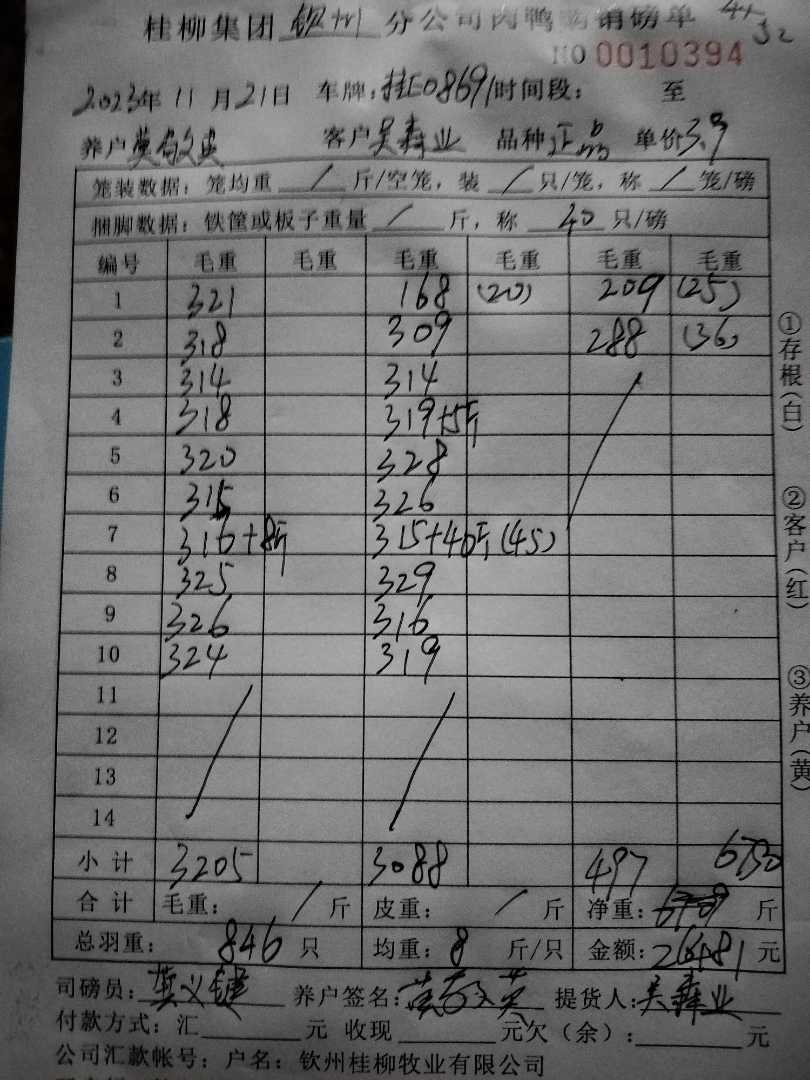 桂柳集团 钦州 分公司肉鸭购销磅单
NO 0010394
2023年 11月 21日 车牌: 时间段: 至
养户 黄敬英 客户 吴森业 品种 正品 单价 3.9
笼装数据: 笼均重 / 斤/空笼, 装 / 只/笼, 称 / 笼/磅
捆脚数据: 铁筐或板子重量 / 斤, 称 40 只/磅
编号 毛重 毛重 毛重 毛重 毛重 毛重
1 321 168 (20) 209 (25)
2 318 309 288 (36)
3 314 314
4 318 319+5斤
5 320 328
6 315 326
7 316+8斤 315+40斤(45)
8 325 329
9 326 316
10 324 319
11
12
13
14
小计 3205 3088 497 6790
合计 毛重: / 斤 皮重: / 斤 净重: 斤
总羽重: 846 只 均重: 8 斤/只 金额: 26481 元
司磅员: 黄义键 养户签名: 黄敬英 提货人: 吴森业
付款方式: 汇 元 收现 元欠(余): 元
公司汇款帐号: 户名: 钦州桂柳牧业有限公司
①存根(白)
②客户(红)
③养户(黄)